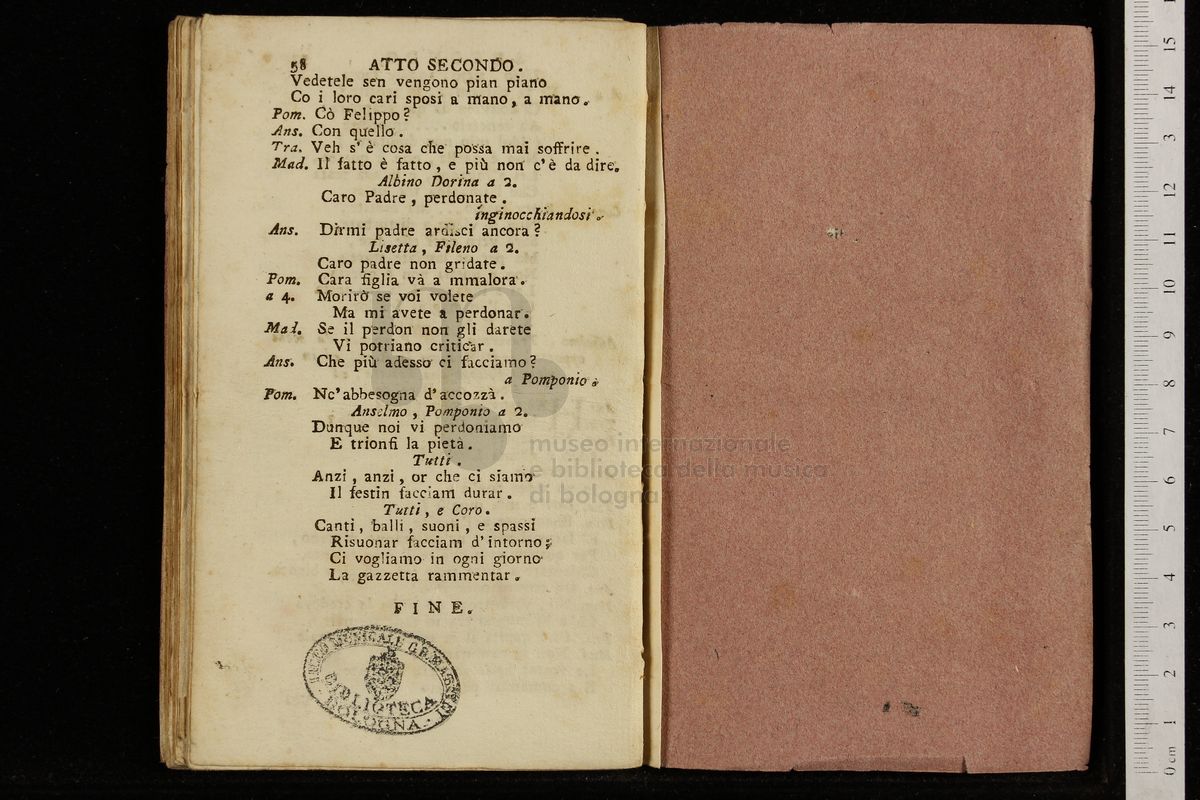 58 ATTO SECONDO.
Vedetele sen vengono pian piano
Co i loro cari sposi a mano, a mano.
Pom. Cò Felippo?
Ans. Con quello.
Tra. Veh s'è cosa che possa mai soffrire.
Mad. Il fatto è fatto, e più non c'è da dire.
Albino Dorina a 2.
Caro Padre, perdonate.
inginocchiandosi.
Ans. Dirmi padre ardisci ancora?
Lisetta, Fileno a 2.
Caro padre non gridate.
Pom. Cara figlia và a mmalora.
a 4. Morirò se voi volete
Ma mi avete a perdonar.
Mad. Se il perdon non gli darete
Vi potriano criticar.
Ans. Che più adesso ci facciamo?
a Pomponio.
Pom. Nc'abbesogna d'accozzà.
Anselmo, Pomponio a 2.
Dunque noi vi perdoniamo
E trionfi la pietà.
Tutti.
Anzi, anzi, or che ci siamo
Il festin facciam durar.
Tutti, e Coro.
Canti, balli, suoni, e spassi
Risuonar facciam d'intorno;
Ci vogliamo in ogni giorno
La gazzetta rammentar.
FINE.
MUSICALE G. B. MARTINI
BIBLIOTECA
BOLOGNA
museo internazionale
e biblioteca della musica
di bologna
0 cm 1 2 3 4 5 6 7 8 9 10 11 12 3 14 15